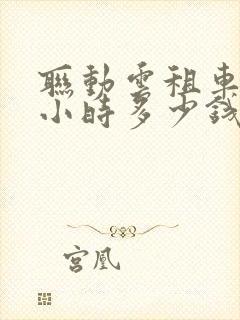 聯動雲租車
小時多少錢
宮凰